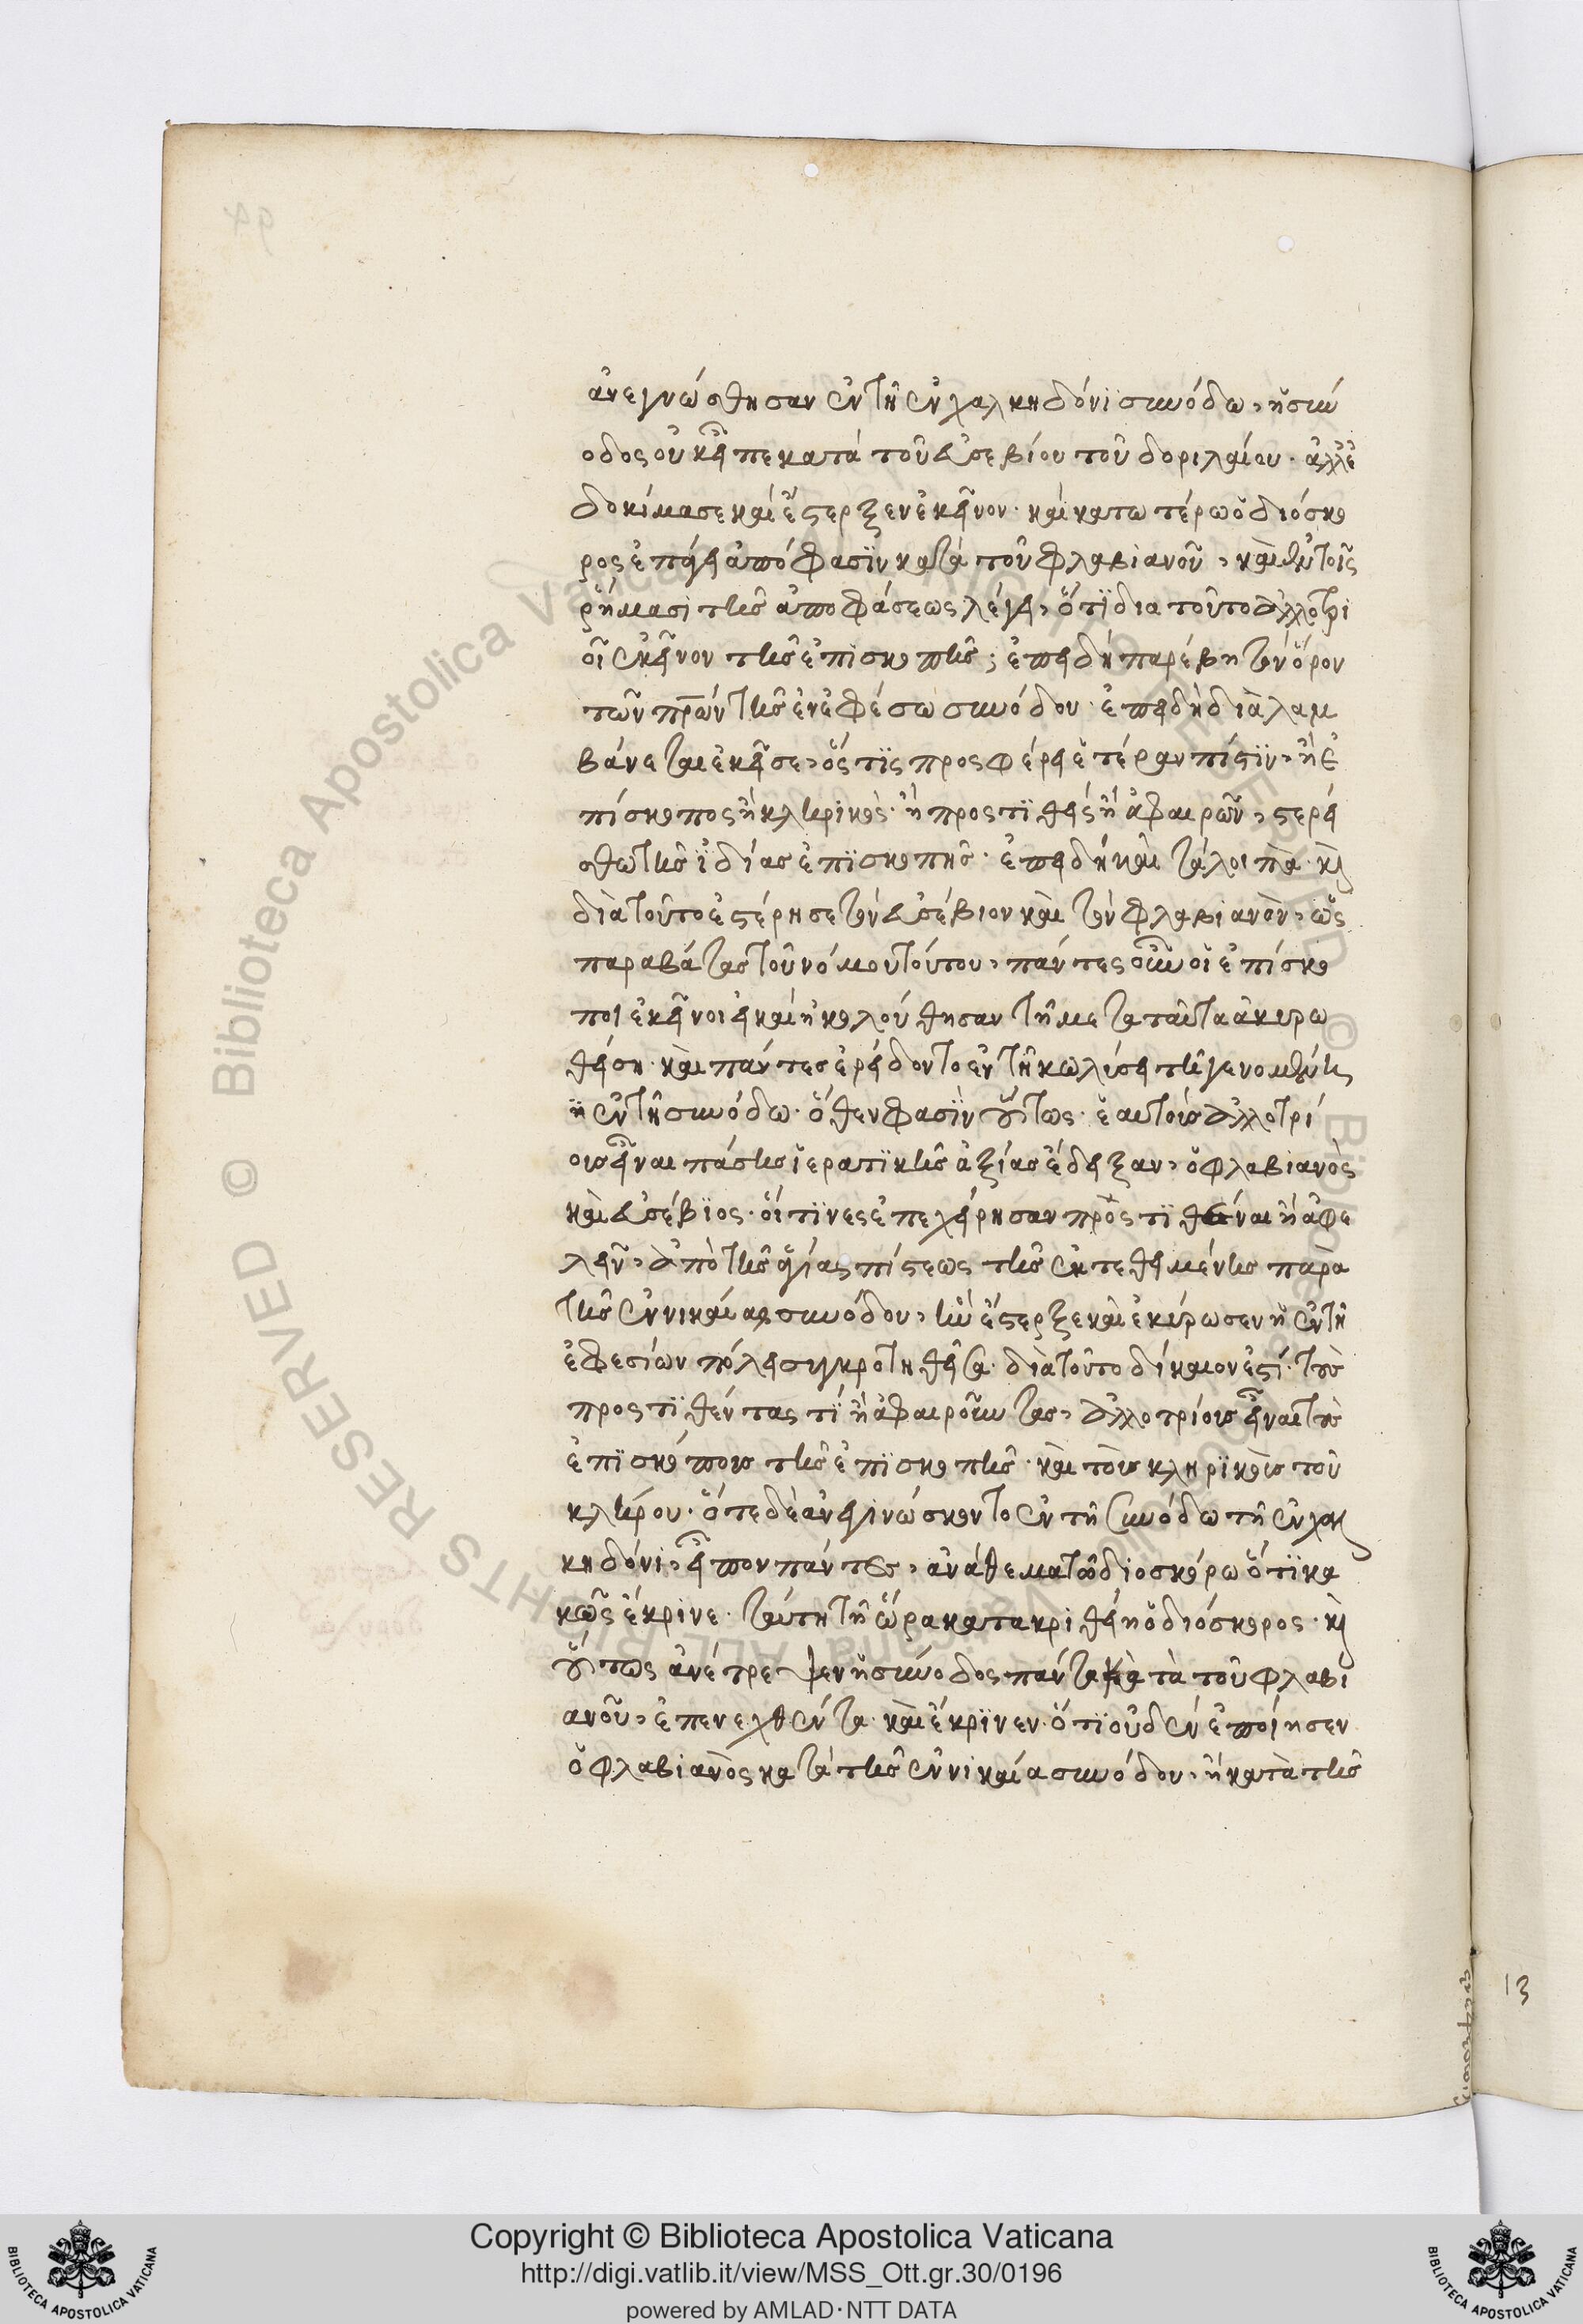 ἀνεγνώσθησαν ἐν τῇ ἐν χαλκηδόνι συνόδω, ἡ σύν
οδος οὐκ εἶπε κατὰ τοῦ εὐσεβίου τοῦ δοριλαίου. ἀλλ' ἐ
δοκίμασε καὶ ἔστερξεν ἐκεῖνον. καὶ κατωτέρω ὁ διόσκο
ρος ἐπάγει ἀπόφασιν κατὰ τοῦ φλαβιανοῦ, καὶ ἐν τοῖς
ῥήμασι τῆς ἀποφάσεως λέγει, ὅτι δια τοῦτο ἀλλοτρι
οῖ ἐκεῖνον τῆς ἐπισκοπῆς; ἐπειδὴ παρέβη τὸν ὅρον
τῶν πρώην τῆς ἐν ἐφέσω συνόδου. ἐπειδὴ διαλαμ
βάνεται ἐκεῖσε, ὅς τις προσφέρει ἑτέραν πίστιν, ἢ ἐ
πίσκοπος ἢ κληρικὸς. ἢ προστιθεὶς ἢ ἀφαιρῶν, στερεί
σθω τῆς ἰδίας ἐπισκοπῆς. ἐπειδὴ καὶ τὰ λοιπὰ. καὶ
διὰ τοῦτο ἐστέρησε τὸν εὐσέβιον καὶ τὸν φλαβιανὸν, ὡς
παραβάτας τοῦ νόμου τούτου, πάντες οὖν οἱ ἐπίσκο
ποι ἐκεῖνοι εἰ καὶ ἠκολούθησαν τῇ μετα ταῦτα ἀκυρω
θείσῃ. καὶ πάντες ἐρείδοντο ἐν τῇ κωλύσει τῇ γενομένῃ
ἢ ἐν τῇ συνόδω. ὅθεν φασὶν οὕτως. ἑαυτοὺς ἀλλοτρί
ους εἶναι πάσης ἱερατικῆς ἀξίας ἔδειξαν, ὁ φλαβιανὸς
καὶ εὐσέβιος. οἵ τινες ἐπεχείρησαν προστιθέναι ἢ ἀφε
λεῖν, ἀπὸ τῆς ἁγίας πίστεως τῆς ἐκτεθειμένης παρὰ
τῆς ἐν νικαίας συνόδου, ἣν ἔστερξε καὶ ἐκύρωσεν ἡ ἐν τῇ
ἐφεσίων πόλει συγκροτηθεῖσα. διὰ τοῦτο δίκαιον ἐστί. τοὺς
προστιθέντας τί ἢ ἀφαιροῦντας, ἀλλοτρίους εἶναι τοὺς
ἐπισκόπους τῆς ἐπισκοπῆς. καὶ τοὺς κληρικοὺς τοῦ
κλήρου. ὅτε δὲ ἀνεγινώσκοντο ἐν τῇ συνόδω τῇ ἐν χαλ
κηδόνι, εἶπον πάντες, ἀνάθεμα τῶ διοσκόρω ὅτι κα
κῶς ἔκρινε. ταύτῃ τῇ ὥρα κατακριθείη ὁ διόσκορος. καὶ
οὕτως ἀνέτρεψεν ἡ σύνοδος πάντα κατὰ τοῦ φλαβι
ανοῦ, ἐπενεχθέντα. καὶ ἔκρινεν. ὅτι οὐδὲν ἐποίησεν
ὁ φλαβιανὸς κατὰ τῆς ἐν νικαία συνόδου, ἢ κατὰ τῆς
13
Copyright © Biblioteca Apostolica Vaticana
http://digi.vatlib.it/view/MSS_Ott.gr.30/0196
powered by AMLAD·NTT DATA